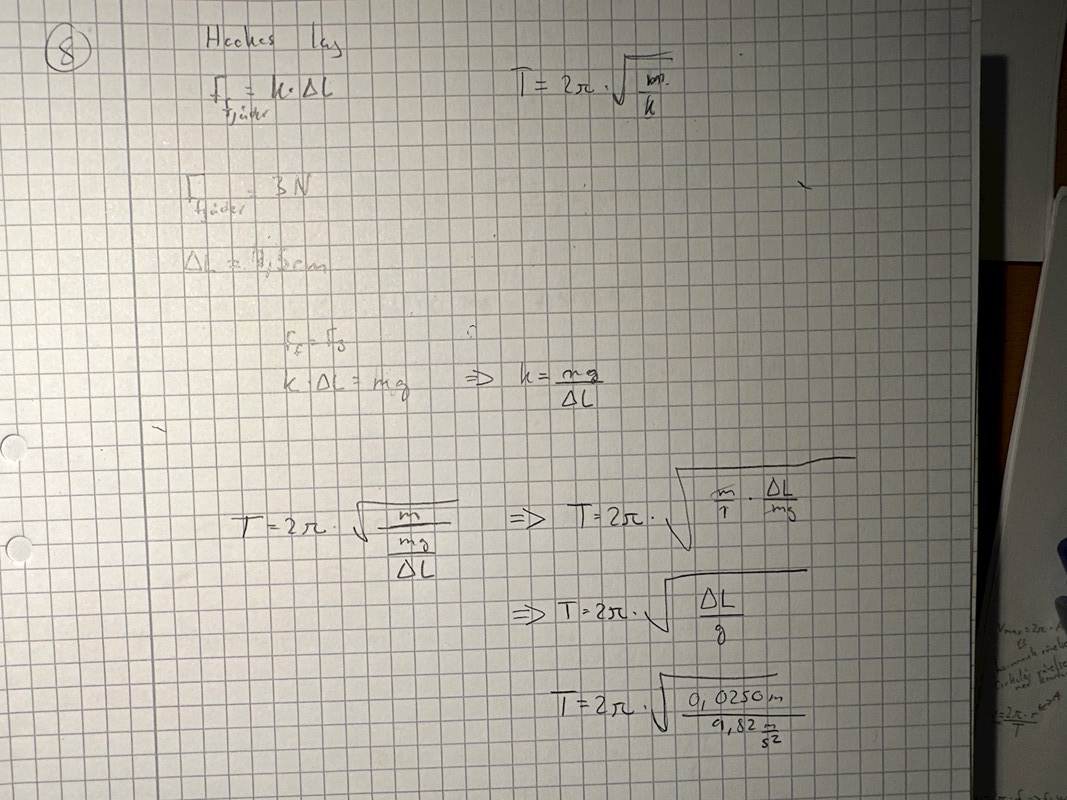 8
Hookes lag
F_fjäder = k · ΔL
T = 2π · √(m/k)
F_fjäder = 3 N
F_f = F_g
k · ΔL = mg ⇒ k = mg/ΔL
T = 2π · √(m/(mg/ΔL)) ⇒ T = 2π · √(m/1 · ΔL/mg)
⇒ T = 2π · √(ΔL/g)
T = 2π · √(0,0250 m / 9,82 m/s²)